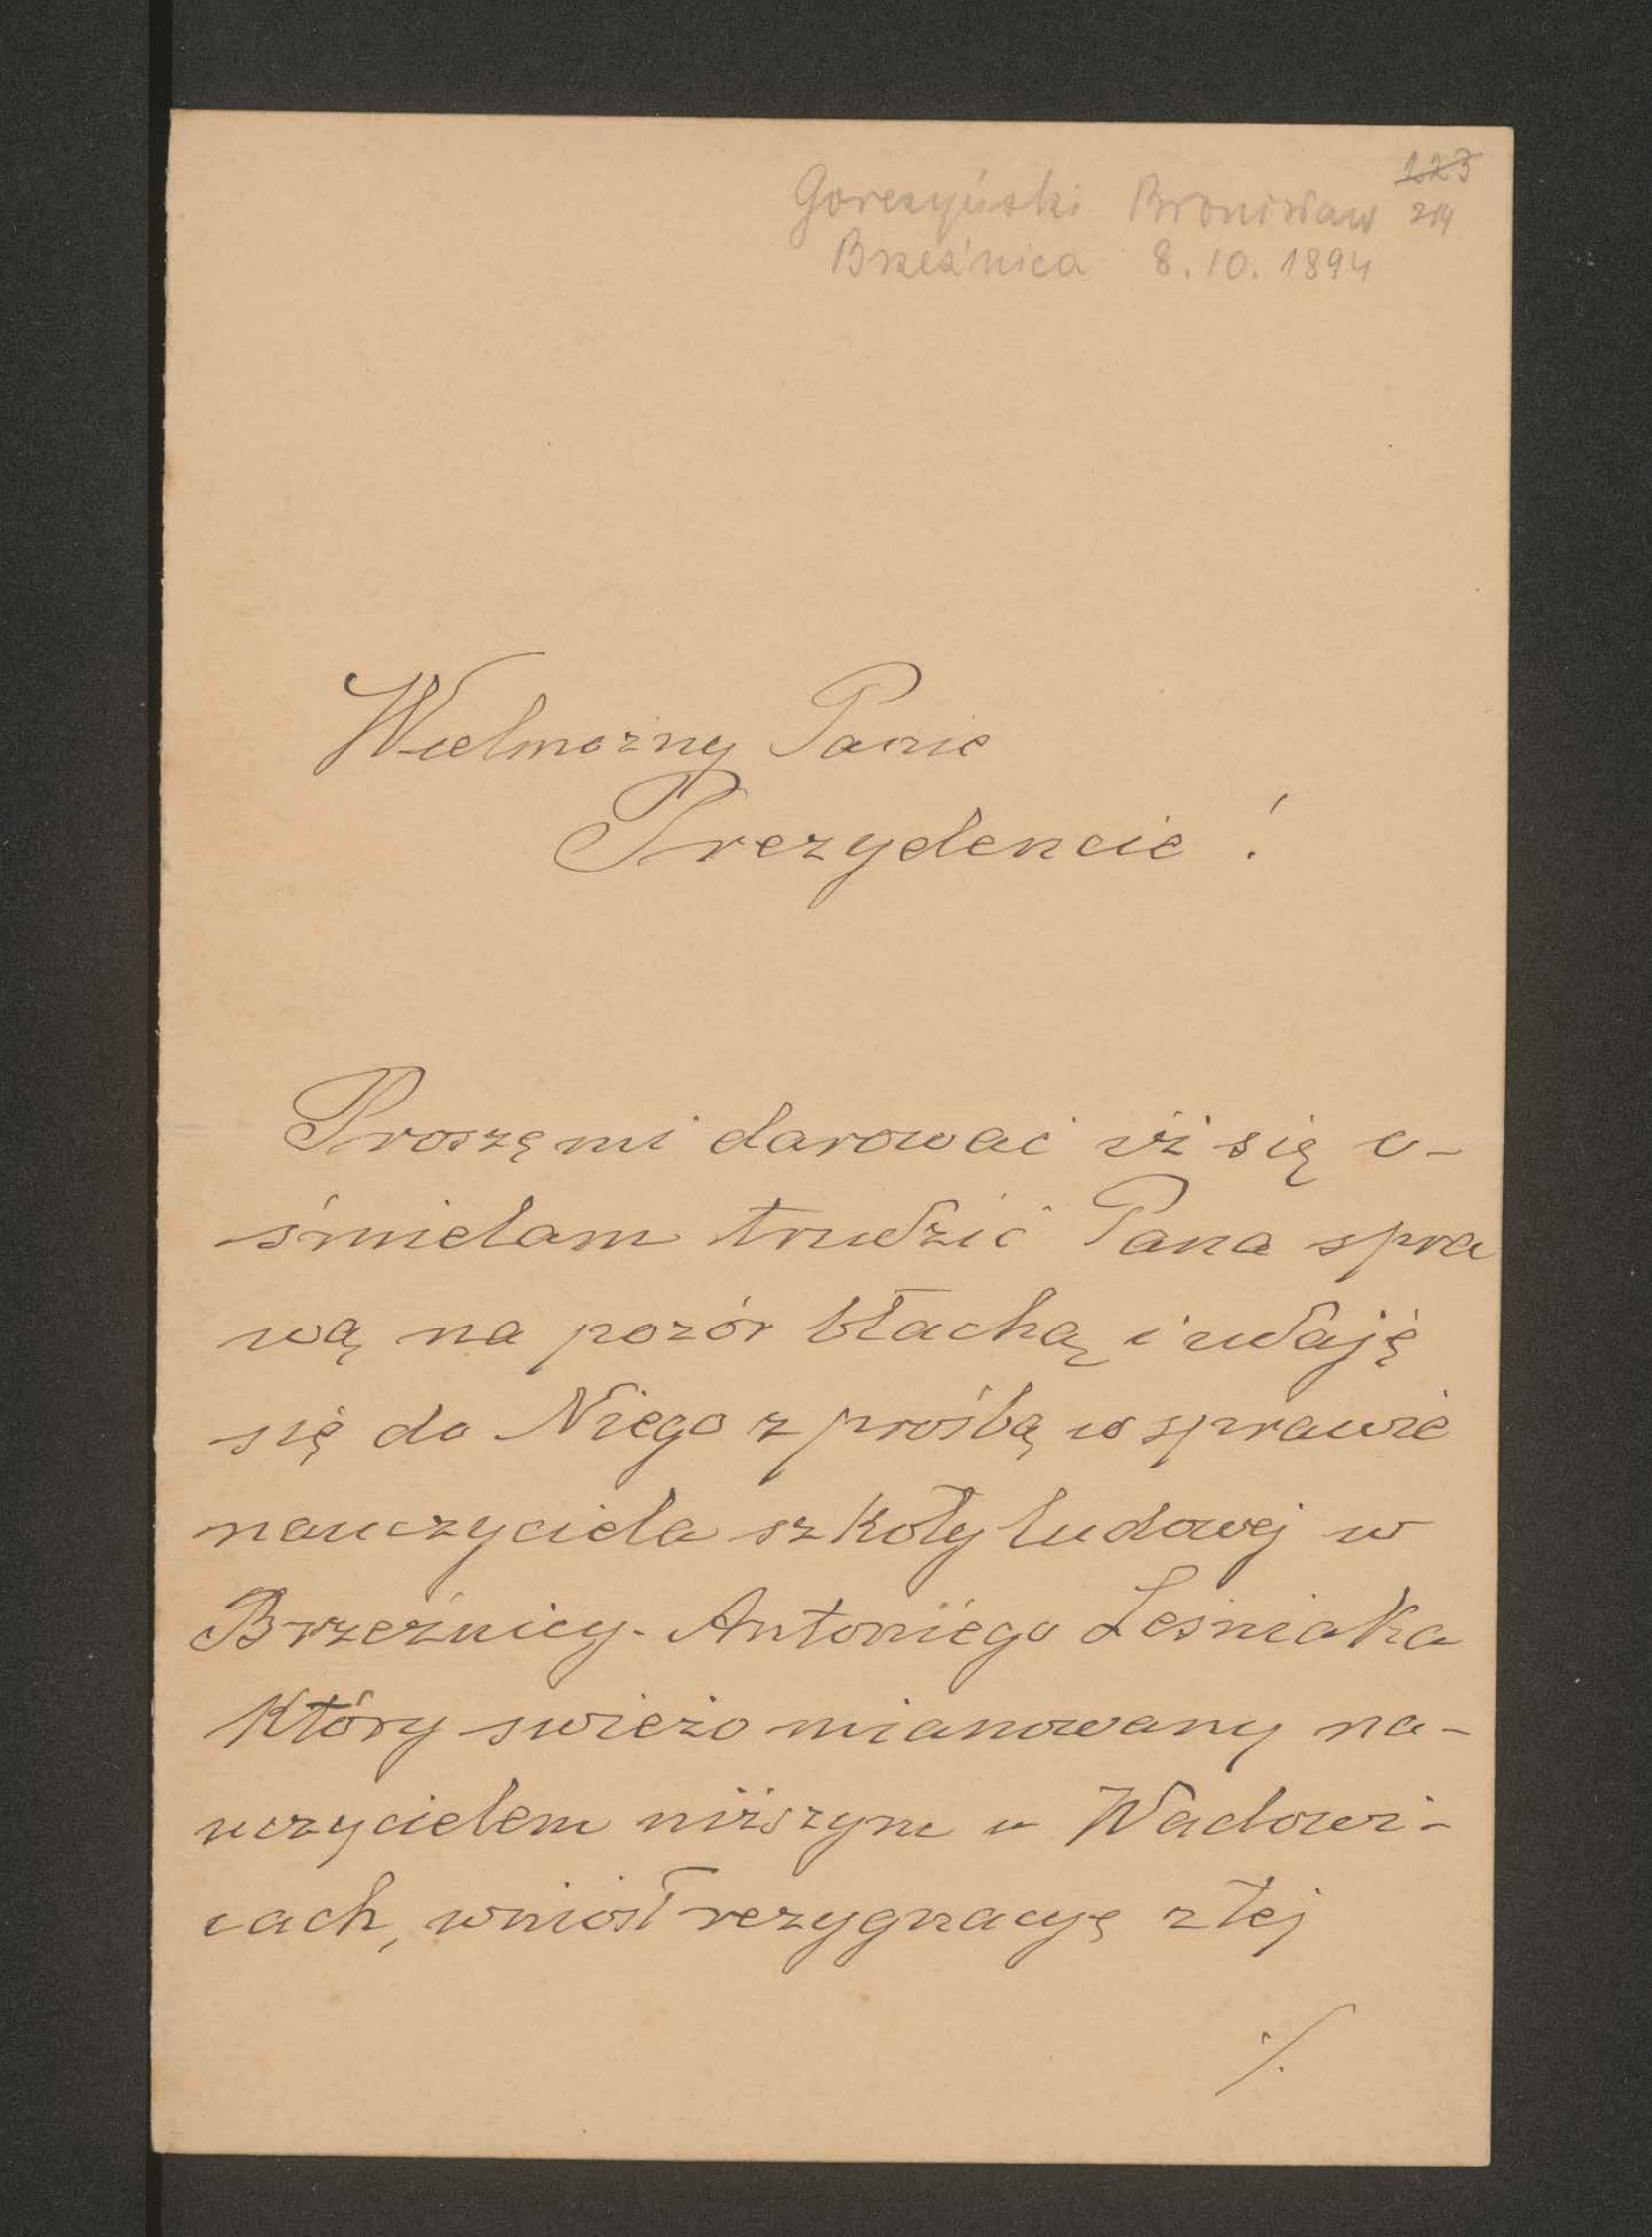 123
Gorczyński Bronisław 214
Brzeźnica 8.10.1894
Wielmożny Panie
Prezydencie !
Proszę mi darować iż się o-
śmielam trudzić Pana spra
wą na pozór błachą i udaję
się do Niego z prośbą w sprawie
nauczyciela szkoły ludowej w
Brzeźnicy - Antoniego Leśniaka
który swieżo mianowany na-
uczycielem niższym w Wadowi-
cach, wniosł rezygnacyę z tej
./.